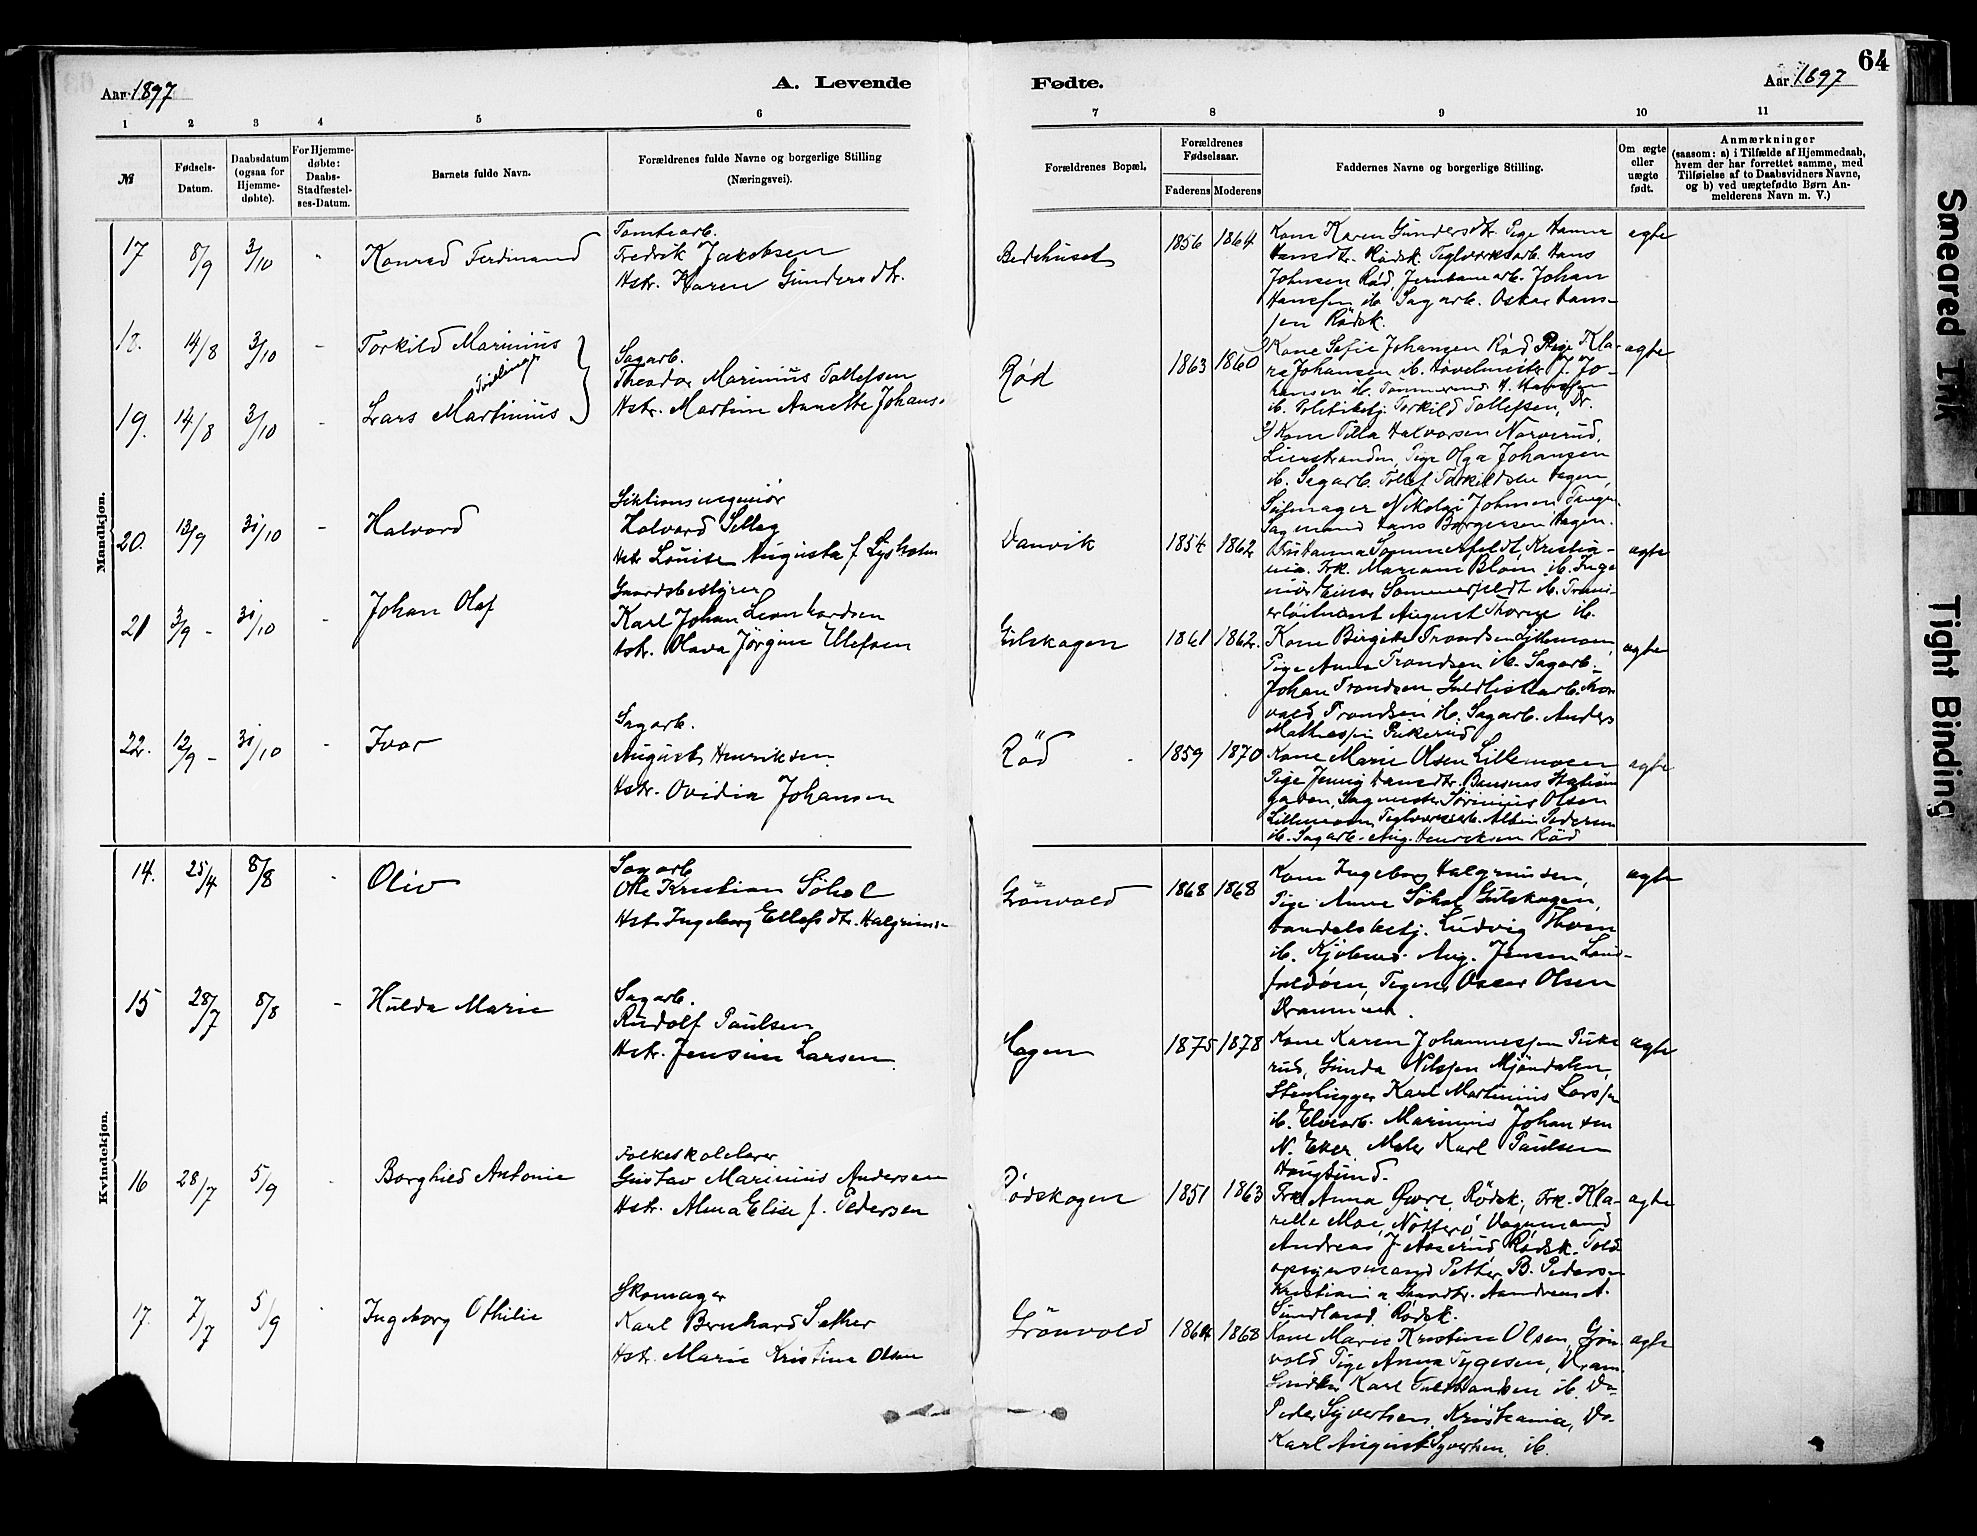 64
Aar 1897
A. Levende
Fødte.
Aar 1897
1 2 3 4 5 6 7 8 9 10 11
№
Fødsels-
Datum.
Daabsdatum
(ogsaa for
Hjemme-
døbte).
For Hjemme-
døbte:
Daabs-
Stadfæstel-
ses-Datum.
Barnets fulde Navn.
Forældrenes fulde Navne og borgerlige Stilling
(Næringsvei).
Forældrenes Bopæl.
Forældrenes
Fødselsaar.
Faderens
Moderens
Faddernes Navne og borgerlige Stilling.
Om ægte
eller
uægte
født.
Anmærkninger
(saasom: a) i Tilfælde af Hjemmedaab,
hvem der har forrettet samme, med
Tilføielse af to Daabsvidners Navne,
og b) ved uægtefødte Børn An-
melderens Navn m. V.)
Mandkjøn.
17 8/9 3/10 - Konrad Ferdinand
Tomtearb.
Fredrik Jakobsen
Hstr. Karen Gundersdtr.
Bedehuset 1856 1864
Kone Karen Gundersdtr. Pige Hanna
Hansdtr. Rødsk. Teglverksarb. Hans
Johnsen Rød, Jernbanearb. Johan
Hanssen ib. Sagarb. Oskar Hans-
sen Rødsk.
ægte
18. 14/8 3/10 - Torkild Marinius
Tvillinger
19. 14/8 3/10 - Lars Martinius
Sagarb.
Theodor Marinius Tollefsen
Hstr. Martine Annette Johans.
Rød 1863 1860
Kone Sofie Johansen Rød Pige Kla-
ra Johansen ib. Høvelmester J. Jo-
hansen ib. Tømmermd H. Hanssen
ib. Politibetj. Torkild Tollefsen, Dr.
2) Kone Tilla Halvorsen Narverud,
Lierstranden, Pige Olga Johansen
ib. Sagarb. Tollef Torkildsen Hagen,
Seilmager Nikolai Johnsen Tangen
Sagmand Hans Borgersen Hagen.
ægte
20. 13/9 31/10 - Halvard
Halvard
Hstr Louise Augusta f. Lysholm
Danvik 1854 1862
Sommerfeldt, Kristia-
nia. Frk. Mariane Blom ib. Inge-
niør Einar Sommerfeldt ib. Premi-
erløitnant August Thorne ib.
ægte
21 3/9 - 31/10 - Johan Olaf
Gaardsbestyrer
Karl Johan Leonhardsen
Hstr. Olava Jørgine Ellefsen
Gulskogen 1861 1862.
Kone Birgitte Trondsen Lillemoen,
Pige Anna Trondsen ib. Sagarb.
Johan Trondsen, Guldlistearb. Thor-
vald Trondsen, ib. Sagarb. Anders
Mathiessen Pukerud
ægte
22. 12/9 - 31/10 - Ivar
Sagarb.
August Henriksen
Hstr. Ovidia Johansen
Rød 1859 1870
Kone Marie Olsen Lillemoen
Pige Jenny Hansdtr. Stations
gaden, Sagmester Sørinius Olsen
Lillemoen, Teglverksarb. Albin Pedersen
ib. Sagarb. Aug. Henriksen Rød
ægte
Kvindekjøn.
14. 25/4 8/8 - Oliv
Sagarb
Ole Kristian Søhol
Hstr Ingeborg Ellefsdtr. Halgrims.
Grønvold 1868 1868
Kone Ingeborg Halgrimsen,
Pige Anne Søhol Gulskogen,
Handelsbetj. Ludvig Thoen
ib. Kjøbmd. Aug. Jensen Land-
faldøen, Tegner Oscar Olsen
Drammen.
ægte
15 28/7 8/8 - Hulda Marie
Sagarb.
Rudolf Paulsen
Hstr. Jensine Larsen
Hagen 1875 1878
Kone Karen Johannessen Puke
rud, Gunda Nilssen Mjøndalen,
Stenhugger Karl Martinius Larssen
ib. Elvearb. Marinius Johansen
N. Eker, Maler Karl Paulsen
Haugsund.
ægte
16 28/7 5/9 - Borghild Antonie
Folkeskolelærer
Gustav Marinius Andersen
Hstr. Alma Elise f. Pedersen
Rødskogen 1851 1863
Frk Anna Øvre, Rødsk., Frk. Kla-
relle Moe, Nøtterø, Vognmand
Andreas J. Aaserud Rødsk. Told-
opsynsmand Petter B. Pedersen
Kristiania Gaardbr. Aandreas A.
Sundland, Rødsk.
ægte
17. 7/7 5/9 - Ingeborg Othilie
Skomager
Karl Bernhard Sether
Hstr. Marie Kristine Olsen
Grønvold 1864 1868
Kone Marie Kristine Olsen, Grøn-
vold Pige Anna Tygesen, Dram.
Snedker Karl Guldbrandsen ib. Do
Peder Syvertsen, Kristiania, Do
Karl August Syvertsen, ib.
ægte
Smeared Ink
Tight Binding